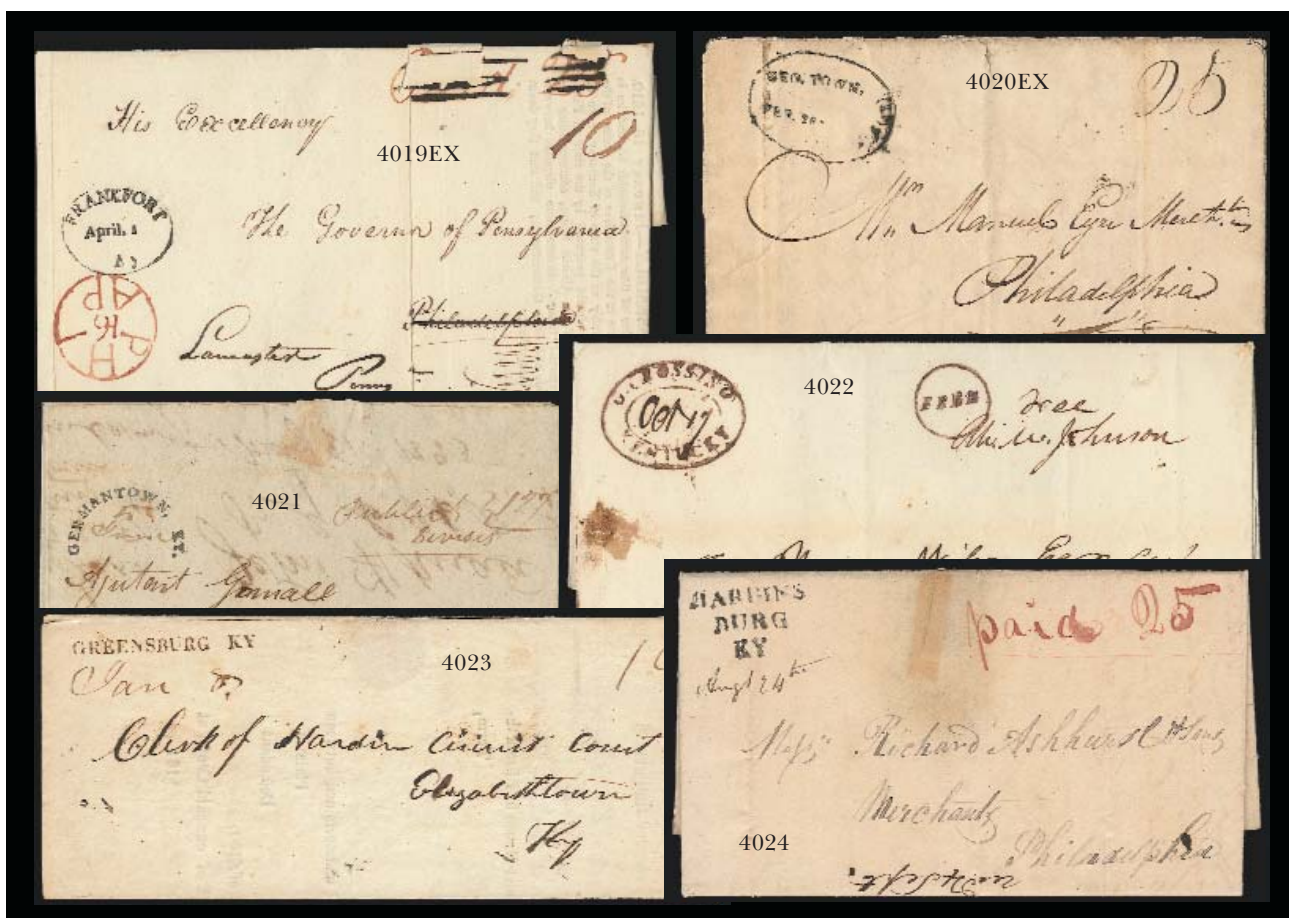 His Excellency
4019EX
10
FRANKFORT
April. 1
The Governor of Pensylvania
PHI
16
AP
Philadelphia
Lancaster
Penns
4020EX
GEO. TOWN,
FEB. 28
25
Manuel Eyre Merch.
Philadelphia
4021
GERMANTOWN, KY.
Public
Ajutant Genrall
4022
CROSSING
Oct 17
KENTUCKY
FREE
Free
Johnson
4023
GREENSBURG KY
Jan
Clerk of Hardin Circuit Court
Elizabethtown
Ky
4024
HARDINS
BURG
KY
Augt 24th
paid 25
Richard Ashhurst & Sons
Merchants
Philadelphia